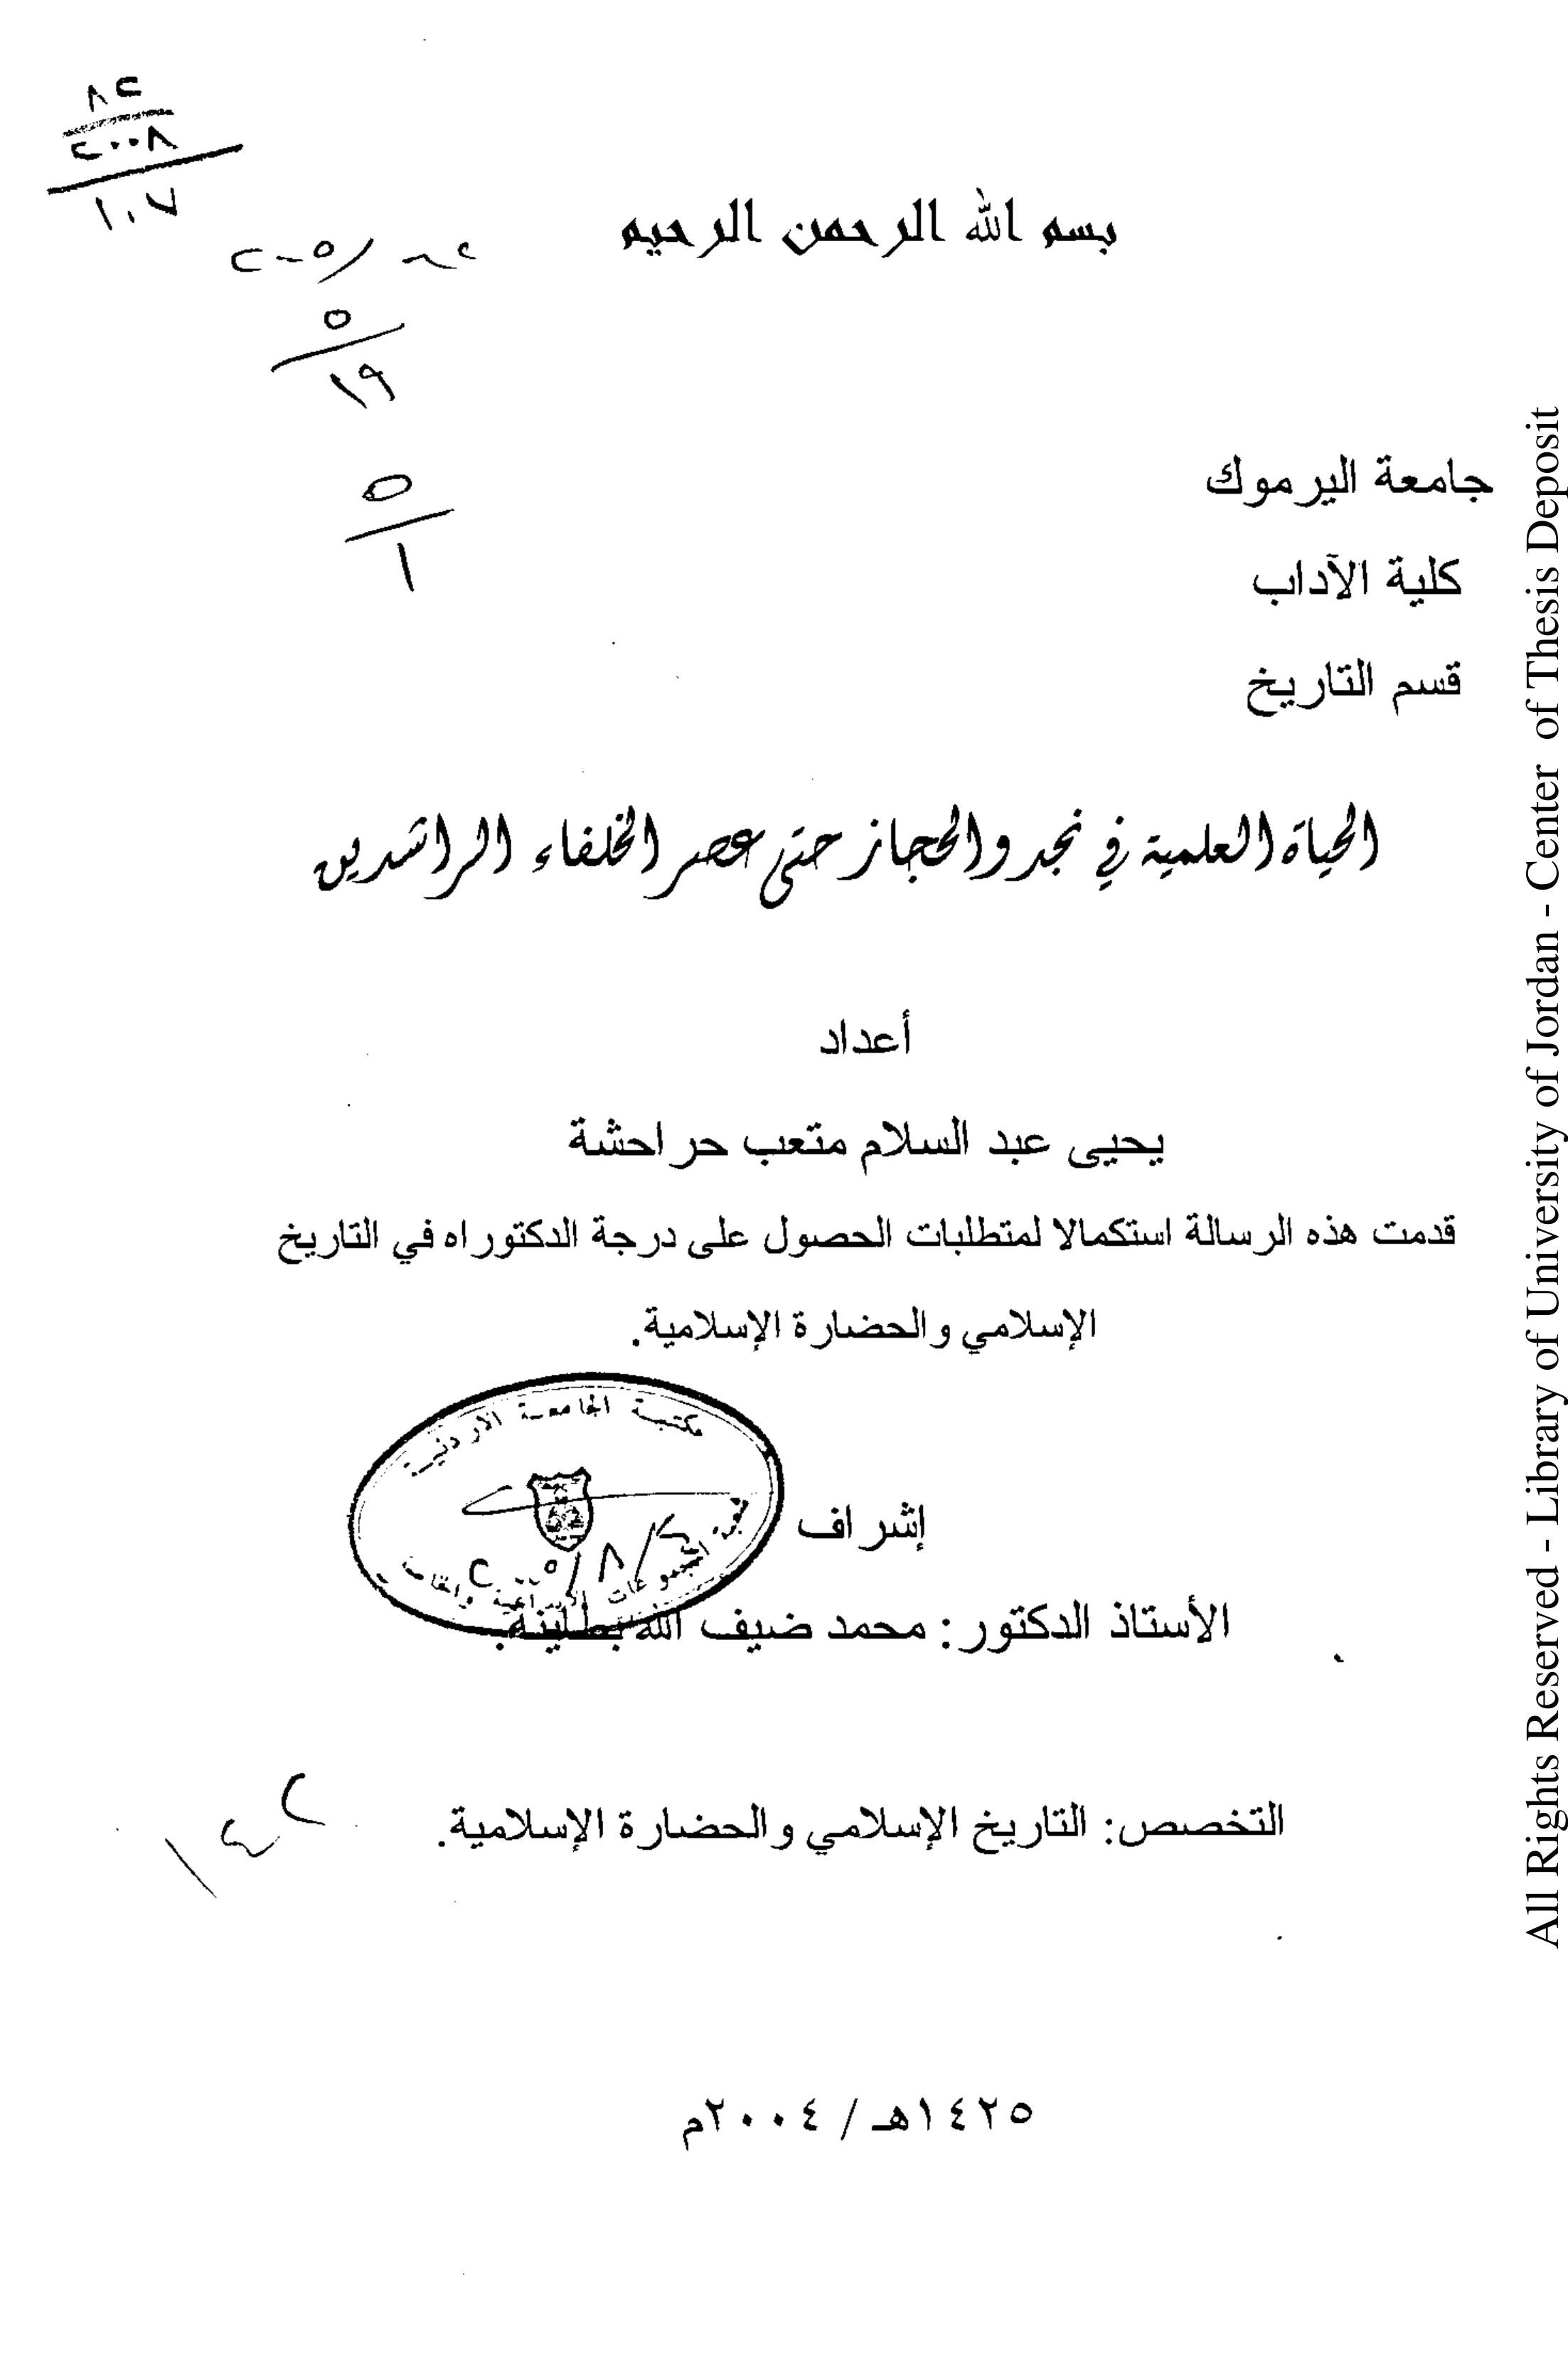 ٨٢
٢٠٠٨
١٠٧
بسم الله الرحمن الرحيم
٥
١٩
٥
١
جامعة اليرموك
كلية الآداب
قسم التاريخ
الحياة العلمية في نجد والحجاز حتى عصر الخلفاء الراشدين
أعداد
يحيى عبد السلام متعب حراحشة
قدمت هذه الرسالة استكمالا لمتطلبات الحصول على درجة الدكتوراه في التاريخ
الإسلامي والحضارة الإسلامية.
مكتبة الجامعة الاردنية
إشراف
الأستاذ الدكتور: محمد ضيف الله بطاينة.
التخصص: التاريخ الإسلامي والحضارة الإسلامية.
١٤٢٥هـ / ٢٠٠٤م
All Rights Reserved - Library of University of Jordan - Center of Thesis Deposit